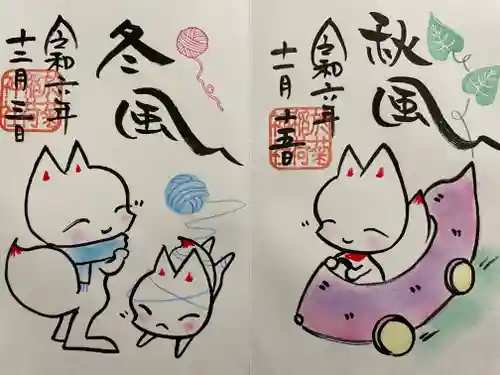 冬風
令和六年
十二月三日
秋風
令和六年
十一月十五日